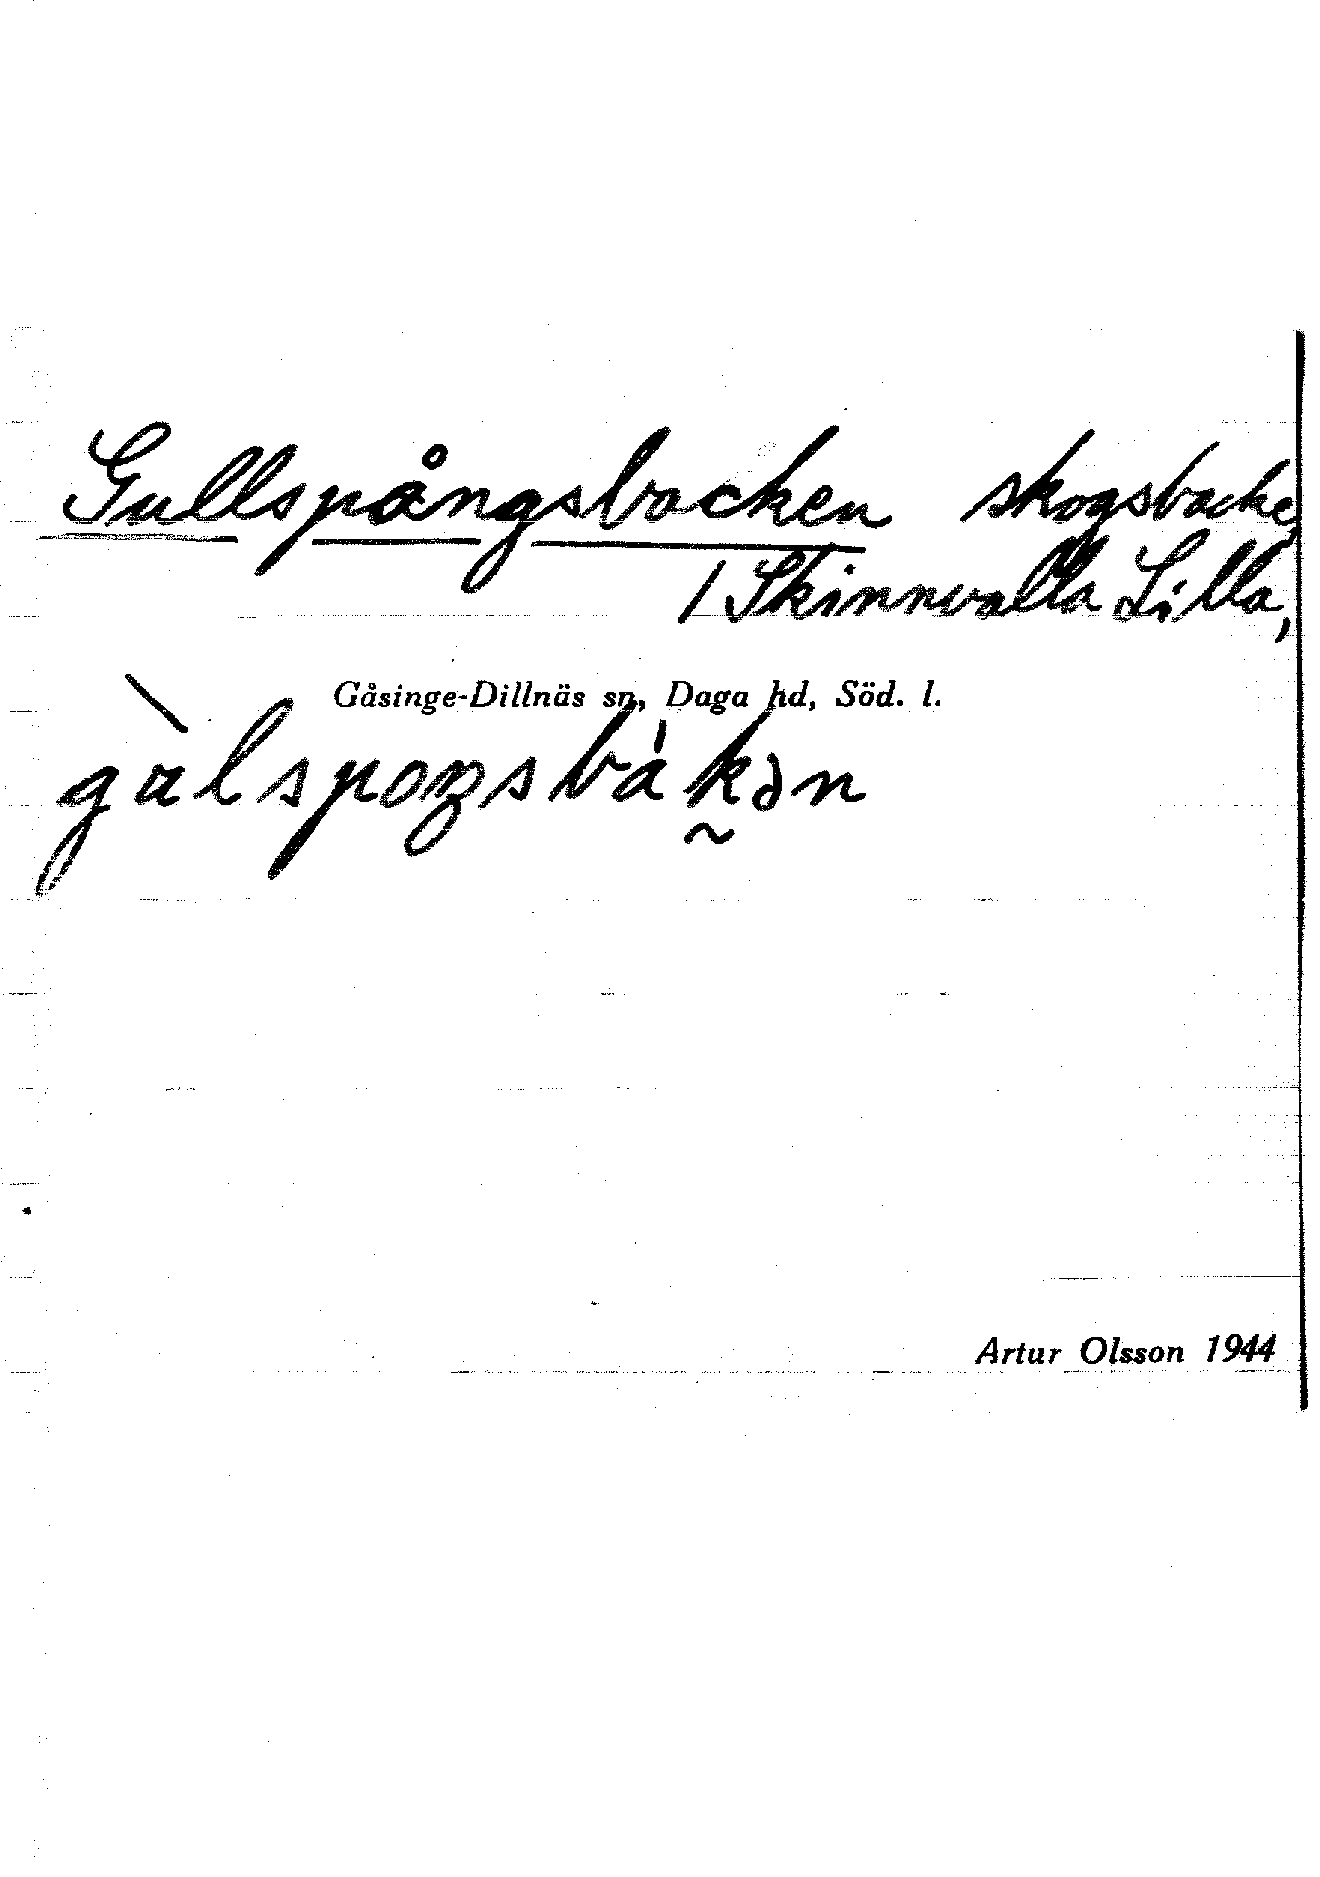 Gullspångsbacken skogsbacke,
/ Skinnvalla Lilla,
Gåsinge-Dillnäs sn, Daga hd, Söd. l.
Artur Olsson 1944